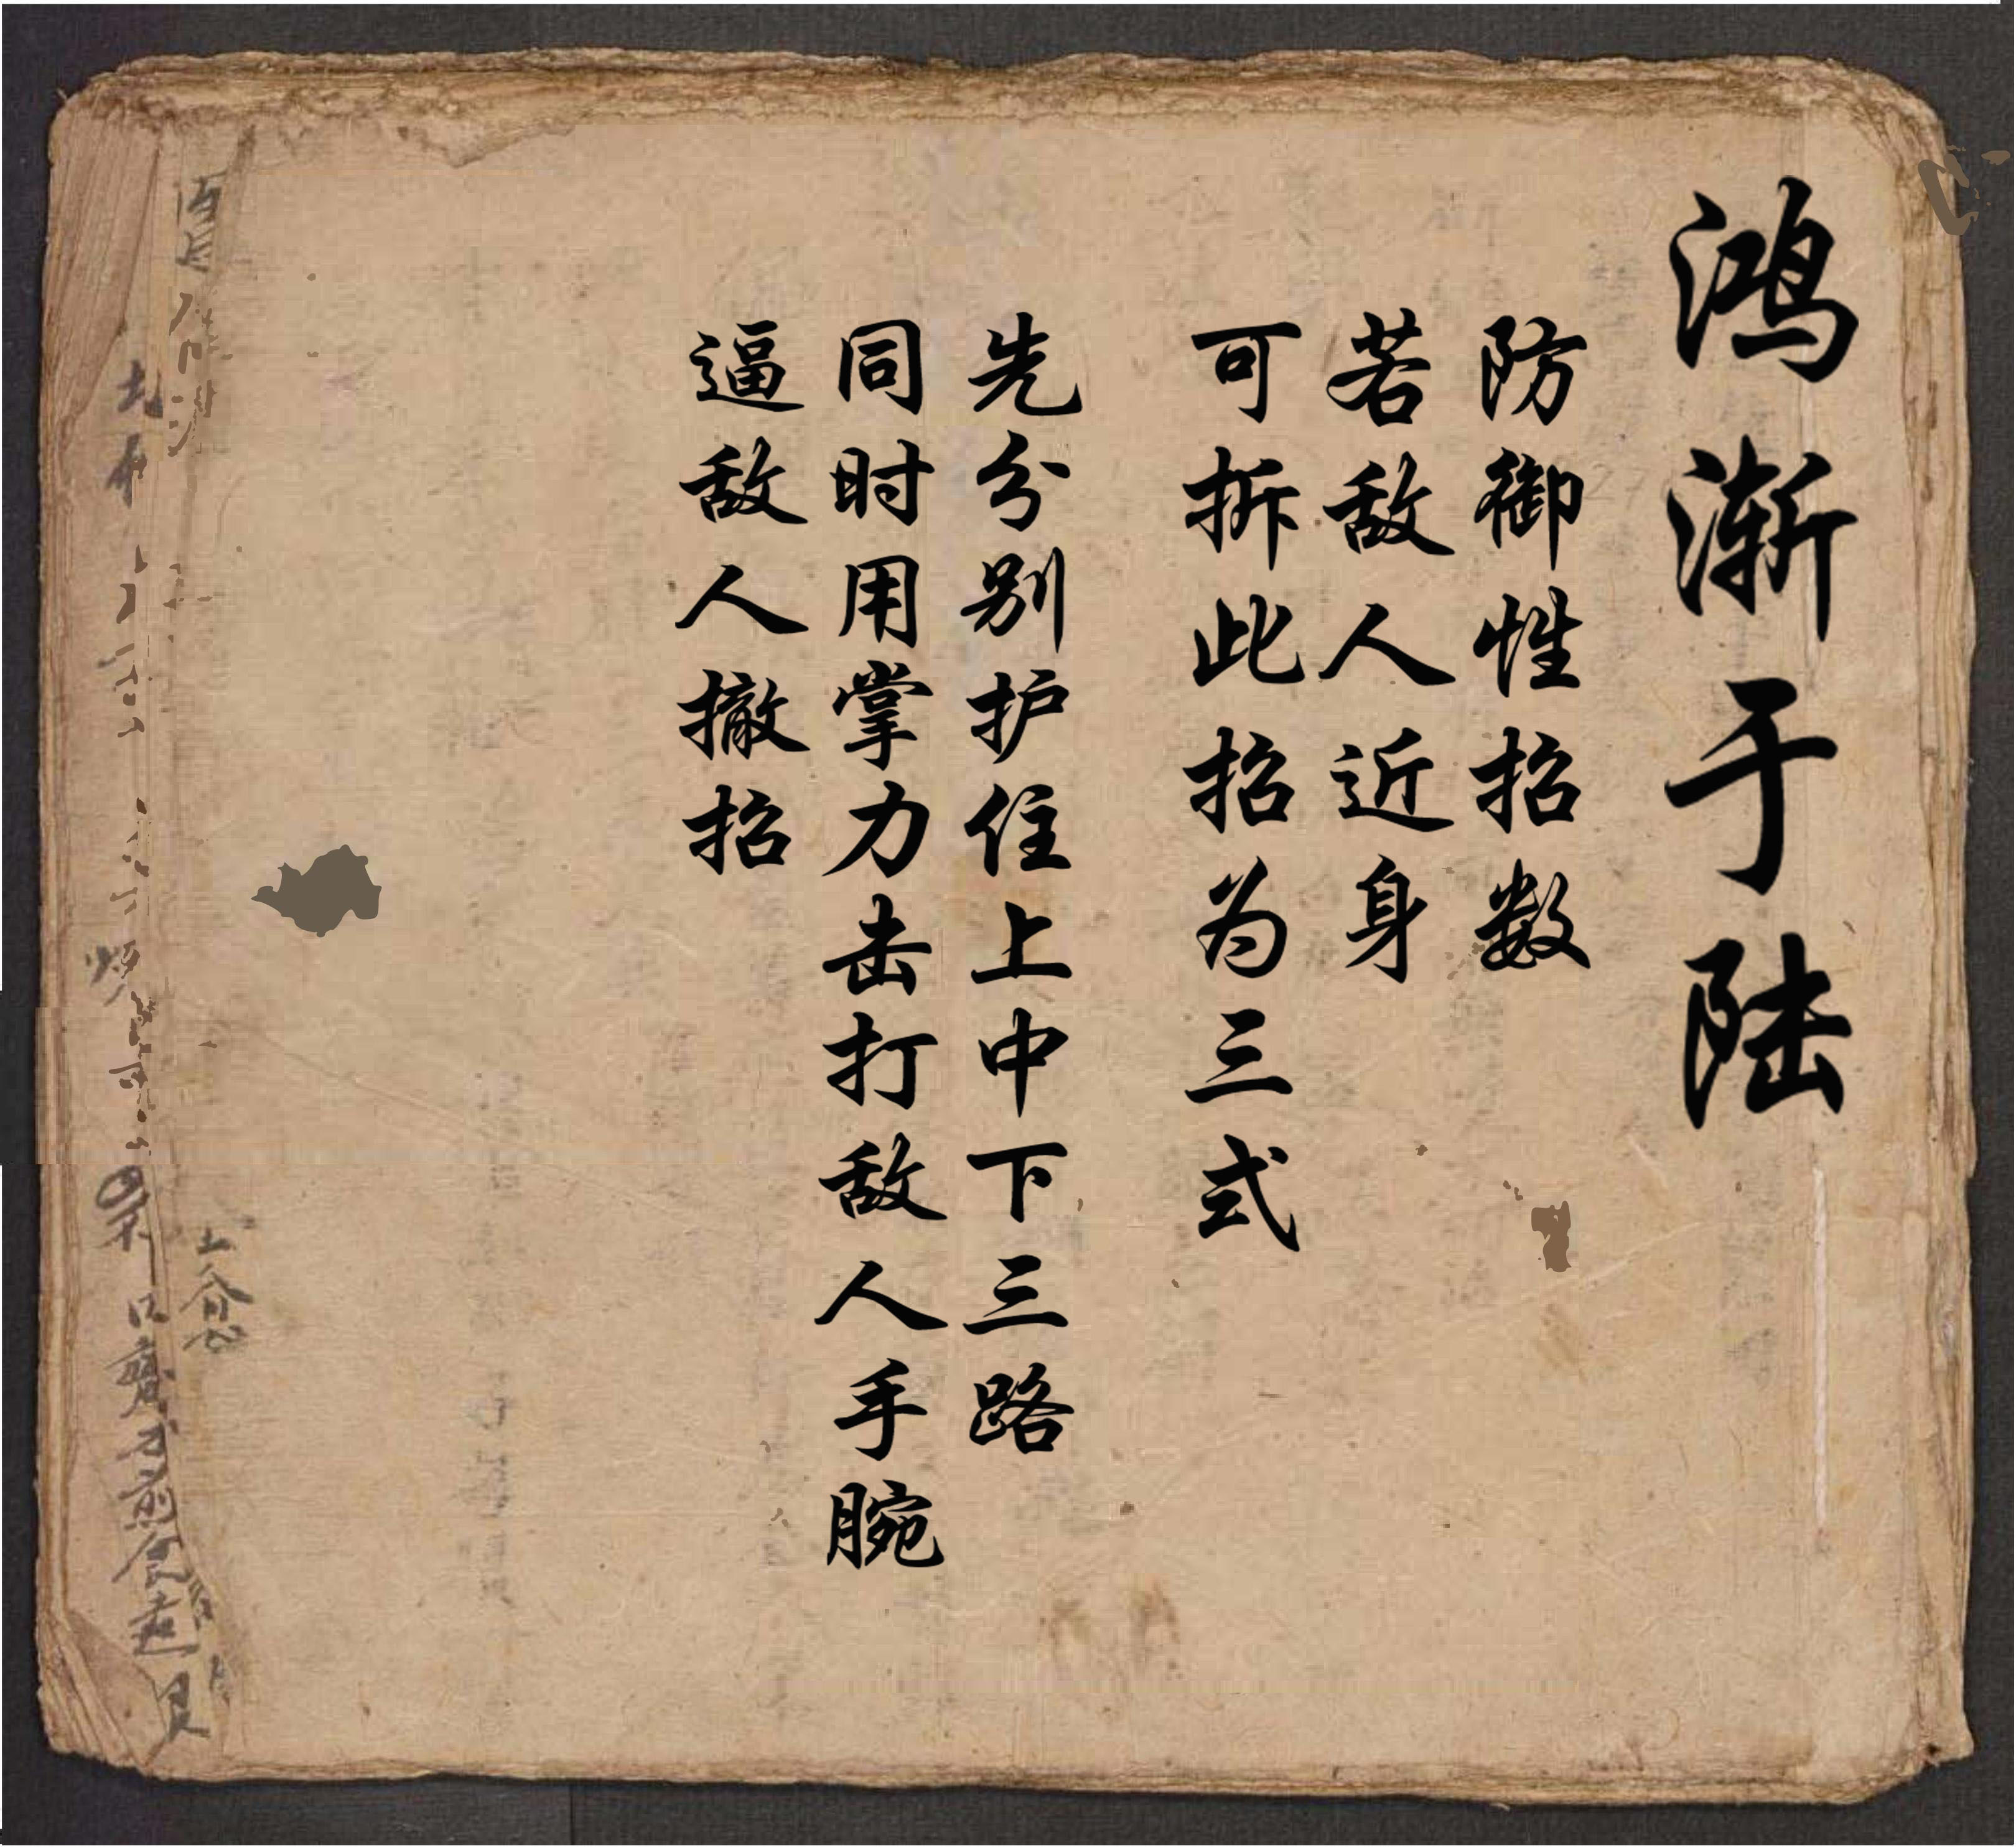 鸿渐于陆
防御性招数
若敌人近身
可拆此招为三式
先分别护住上中下三路
同时用掌力击打敌人手腕
逼敌人撤招